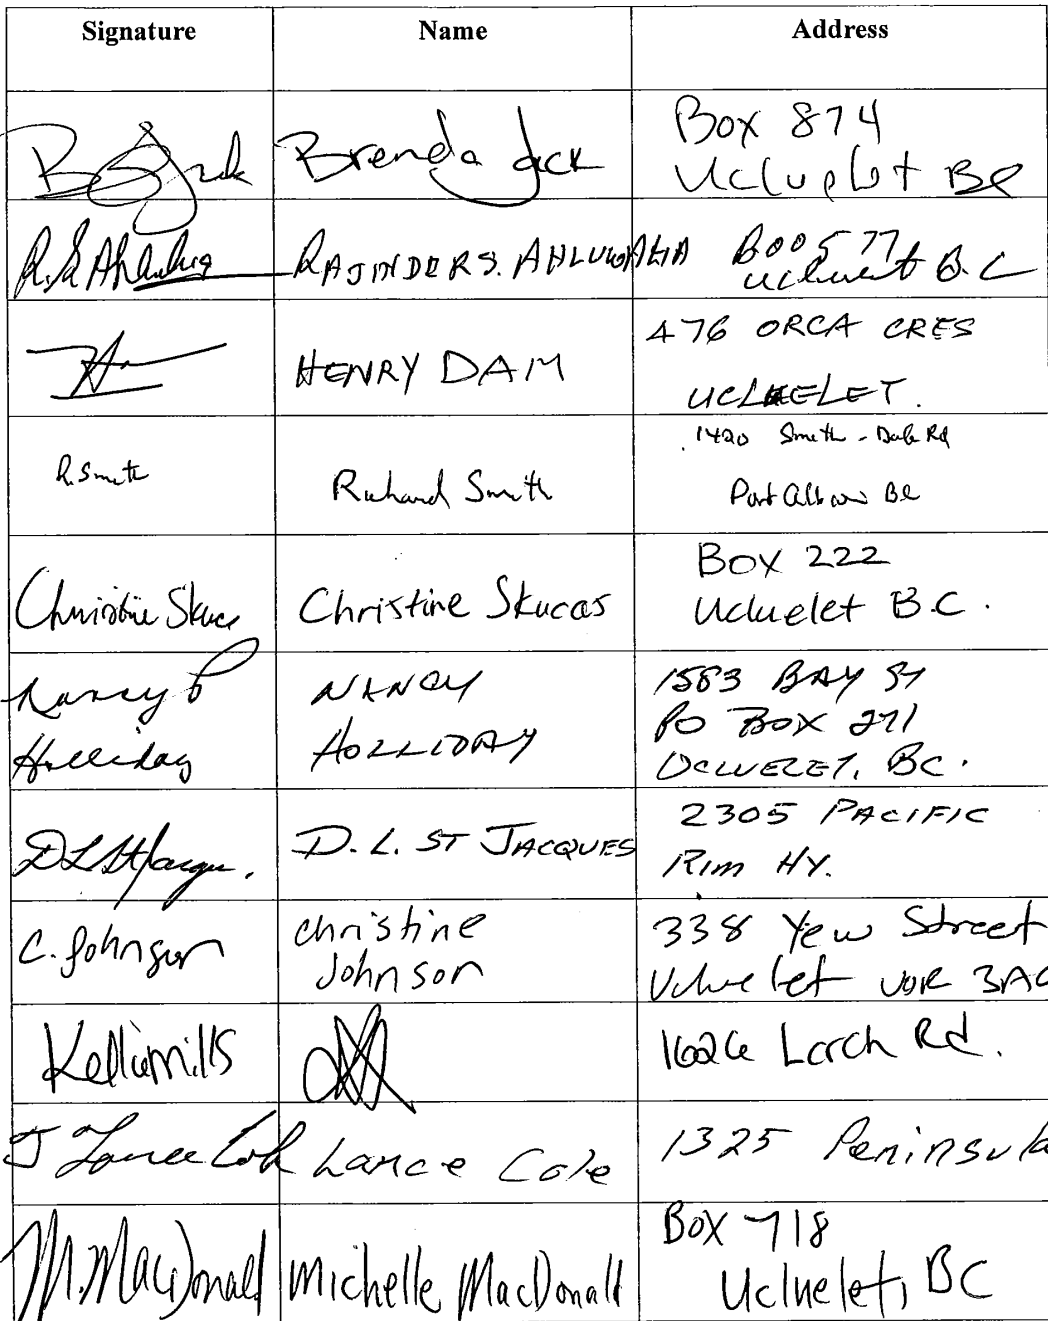 Signature Name Address
Brenda Jack Box 874
Ucluelet BC
RAJINDER S. AHLUWALIA
B.C
HENRY DAM 476 ORCA CRES
UCLUELET.
R. Smith Richard Smith 1420 Smith - Dale Rd
Port Alberni BC
Christine Skucas Christine Skucas Box 222
Ucluelet B.C.
Nancy P NANCY 1583 BAY ST
Holliday HOLLIDAY PO BOX 271
UCLUELET, BC.
D. L. ST JACQUES 2305 PACIFIC
RIM HY.
C. Johnson Christine 338 Yew Street
Johnson Ucluelet V0R 3A0
Kellie Mills 1626 Larch Rd.
J Lance Cole Lance Cole 1325 Peninsula
M. MacDonald Michelle MacDonald Box 718
Ucluelet, BC